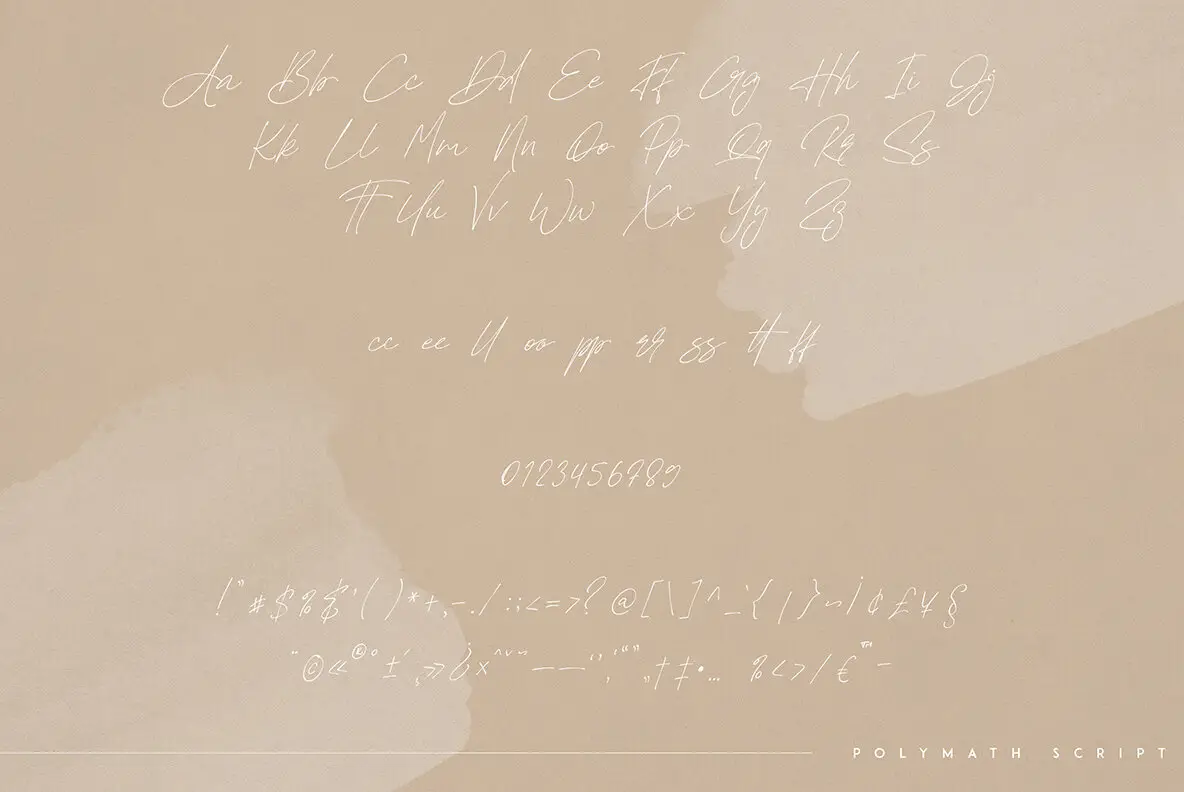 Aa Bb Cc Dd Ee Ff Gg Hh Ii Jj
Kk Ll Mm Nn Oo Pp Qq Rr Ss
Tt Uu Vv Ww Xx Yy Zz
cc ee ll oo pp rr ss tt ff
0123456789
!"#$%&'()*+,-./:;<=>?@[\]^_`{|}~¡¢£¥§
¨©«®°±´¸»¿×ˆˇ˜–—‘’‚“”„†‡•…‰‹›⁄€™−
POLYMATH SCRIPT